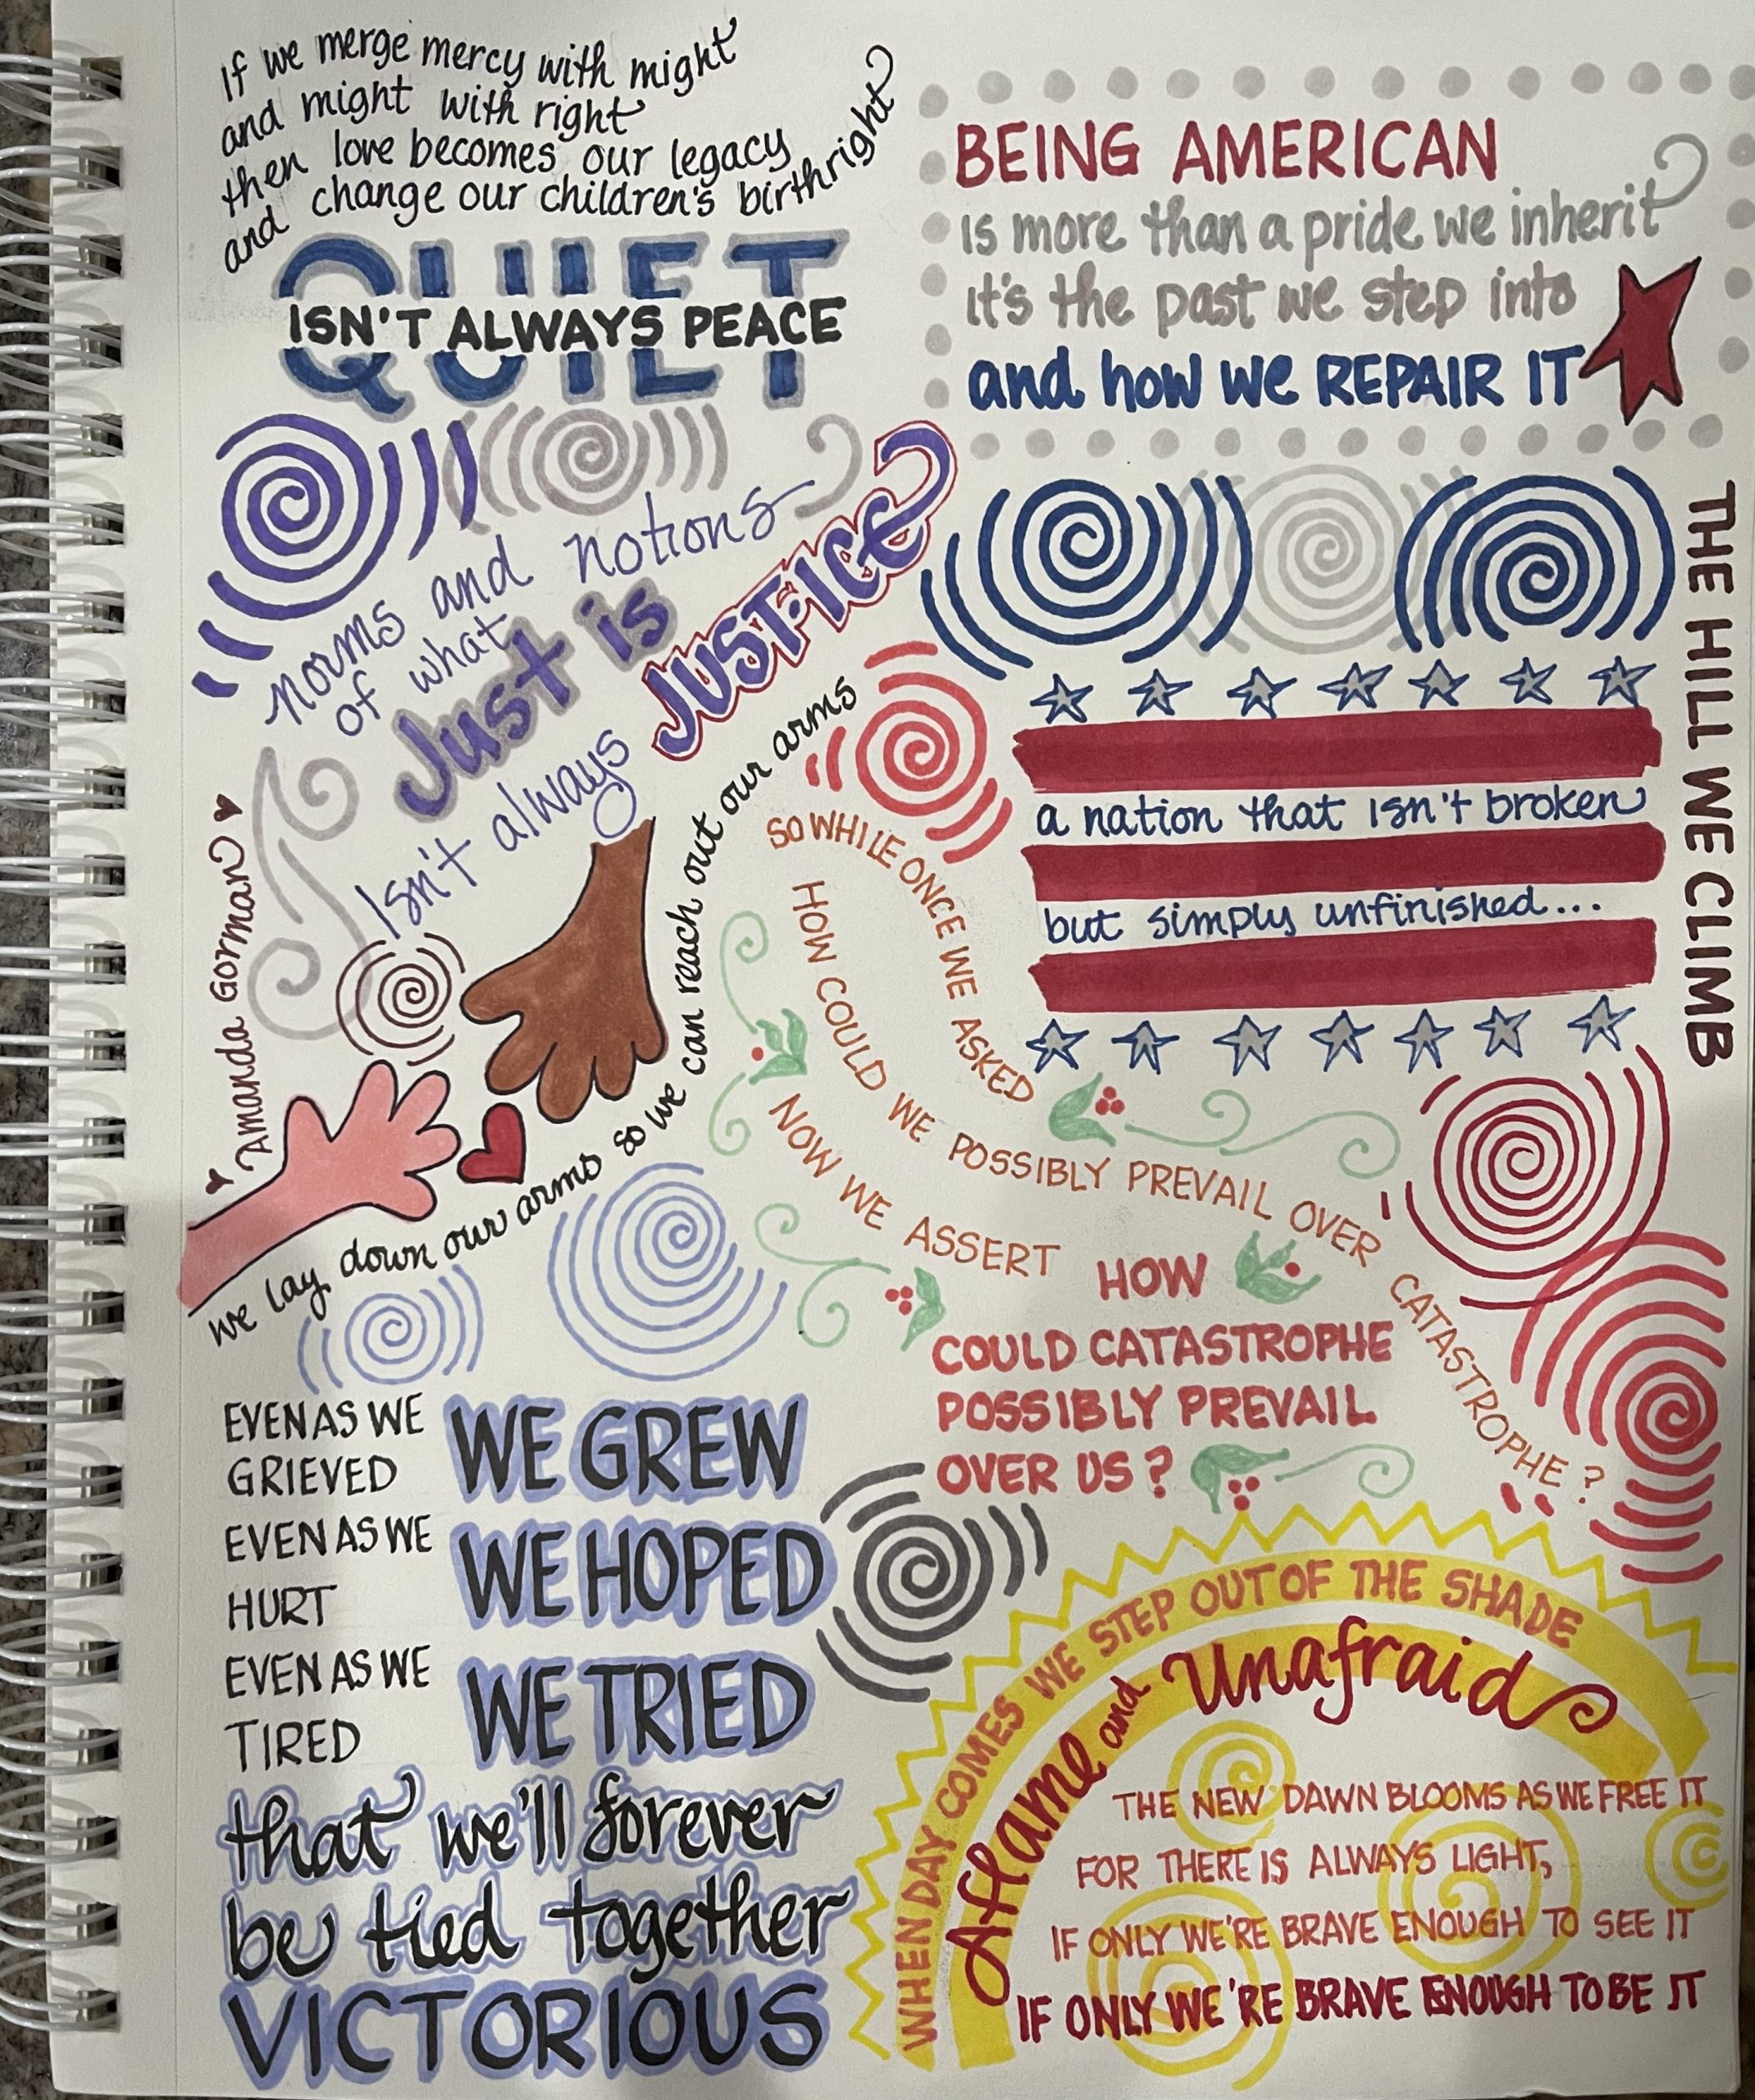 If we merge mercy with might
and might with right
then love becomes our legacy
and change our children's birthright
QUIET
ISN'T ALWAYS PEACE
BEING AMERICAN
is more than a pride we inherit
it's the past we step into
and how we REPAIR IT
norms and notions
of what
Just is
Isn't always JUST-ICE
Amanda Gorman
we lay down our arms so we can reach out our arms
THE HILL WE CLIMB
a nation that isn't broken
but simply unfinished...
SO WHILE ONCE WE ASKED
HOW COULD WE POSSIBLY PREVAIL OVER CATASTROPHE?
NOW WE ASSERT
HOW
COULD CATASTROPHE
POSSIBLY PREVAIL
OVER US?
EVEN AS WE
GRIEVED
WE GREW
EVEN AS WE
HURT
WE HOPED
EVEN AS WE
TIRED
WE TRIED
that we'll forever
be tied together
VICTORIOUS
WHEN DAY COMES WE STEP OUT OF THE SHADE
Aflame and Unafraid
THE NEW DAWN BLOOMS AS WE FREE IT
FOR THERE IS ALWAYS LIGHT,
IF ONLY WE'RE BRAVE ENOUGH TO SEE IT
IF ONLY WE'RE BRAVE ENOUGH TO BE IT